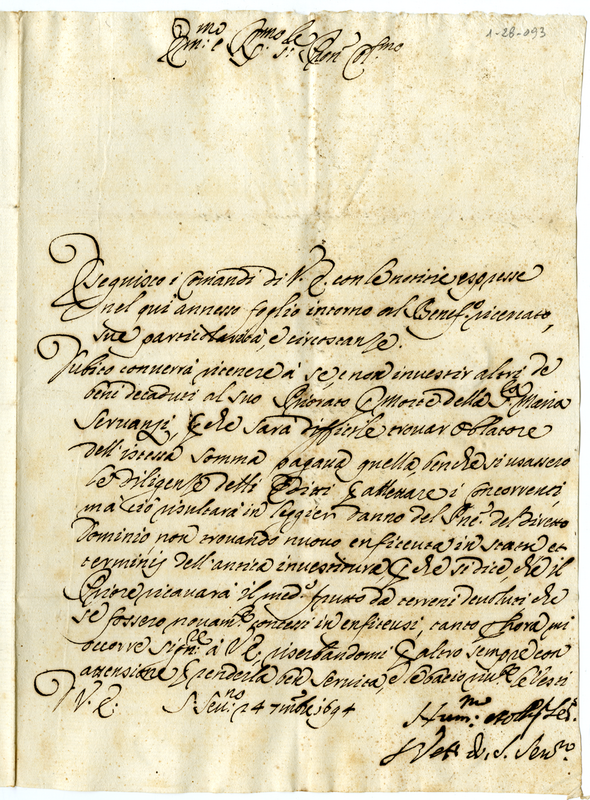 1-28-093
Em:mo e R:mo S:re Pron
Eseguisco i Comandi di V. E. con le notizie espresse
nel qui annesso foglio intorno al Benef:o ricercato,
sue particolarità, e circostanze.
Dubito converrà ritenere à sé, e non investir altri de
beni decaduti al suo Priorato p morte della S:ra Maria
Servanzi, p che sarà difficile trovar oblatore
dell'istessa somma pagava quella, benche si usassero
le diligenze degli Editti p allettare i concorrenti,
mà ciò risulterà in leggier danno del Pne: del diretto
Dominio non trovando nuovo enfiteuta in statu et
terminis dell'antica investitura, p che si dice che il
Priore ricavarà il med:o frutto da terreni devoluti che
se fossero novam:te concessi in enfiteusi, tanto p hora mi
occorre sign:re à V. E., riserbandomi p altro sempre con
attensione p renderla ben servita, e le bacio um:te le vesti
D V. E. S. Sev:no 24 7mbre 1694
Hum:mo Ser:
Vesc di S. Sev:no